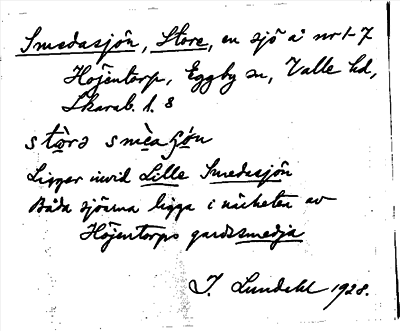 Smedasjön, Store, en sjö å nr 1-7
Höjentorp, Eggby sn, Valle hd,
Skarab. l. 8
stɷrə smèaʃɷ́n
Ligger invid Lille Smedasjön
Båda sjöarna ligga i närheten av
Höjentorps gardssmedja
J. Lundahl 1928.